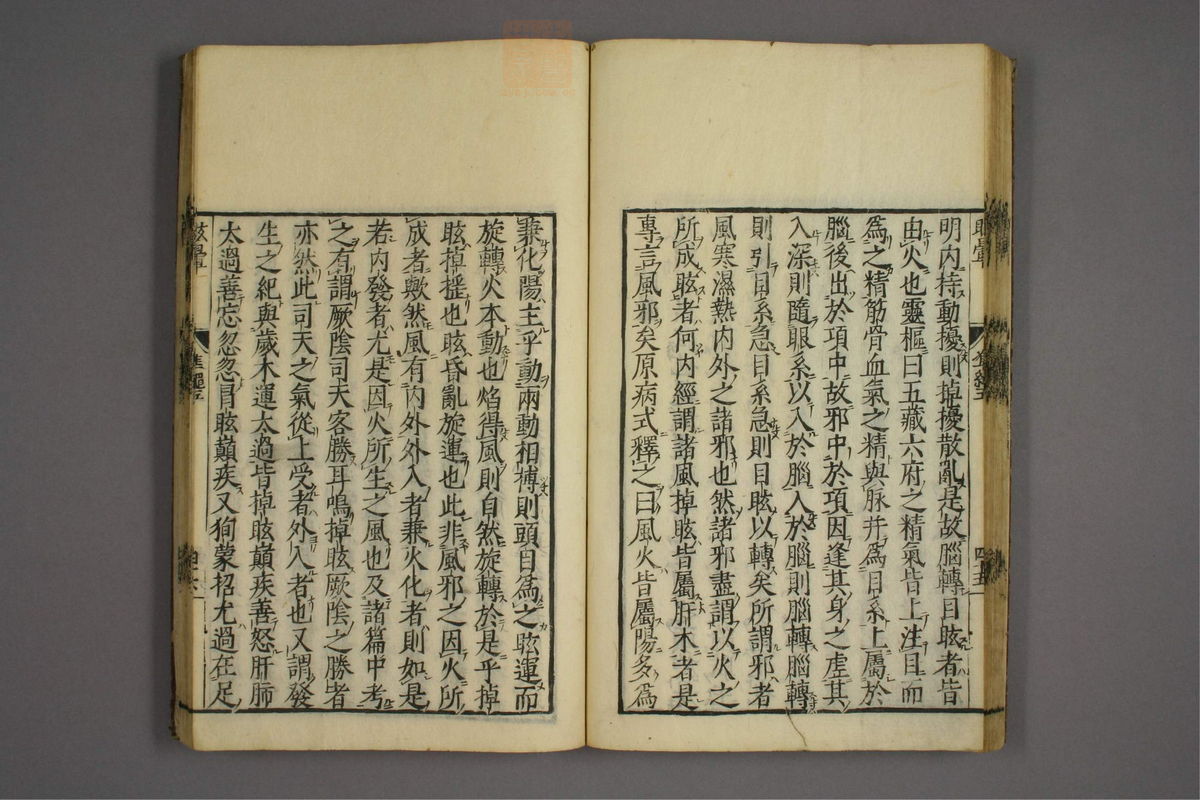 明内持動擾則掉擾散亂是故腦轉目眩者皆
由火也靈樞曰五藏六府之精氣皆上注目而
爲之精筋骨血氣之精與脉并爲目系上屬於
腦後出於項中故邪中於項因逢其身之虛其
入深則隨眼系以入於腦入於腦則腦轉腦轉
則引目系急目系急則目眩以轉矣所謂邪者
風寒濕熱内外之諸邪也然諸邪盡謂以火之
所成眩者何内經謂諸風掉眩皆屬肝木者是
專言風邪矣原病式釋之曰風火皆屬陽多爲
兼化陽主乎動兩動相搏則頭目爲之眩運而
旋轉火本動也焰得風則自然旋轉於是乎掉
眩掉搖也眩昏亂旋運也此非風邪之因火所
成者歟然風有内外外入者兼火化者則如是
若内發者尤是因火所生之風也及諸篇中考
之有謂厥陰司天客勝耳鳴掉眩厥陰之勝者
亦然此司天之氣從上受者外入者也又謂發
生之紀與歲木運太過皆掉眩巔疾善怒肝肺
太過善忘忽忽冒眩巔疾又徇蒙招尤過在足
眩暈